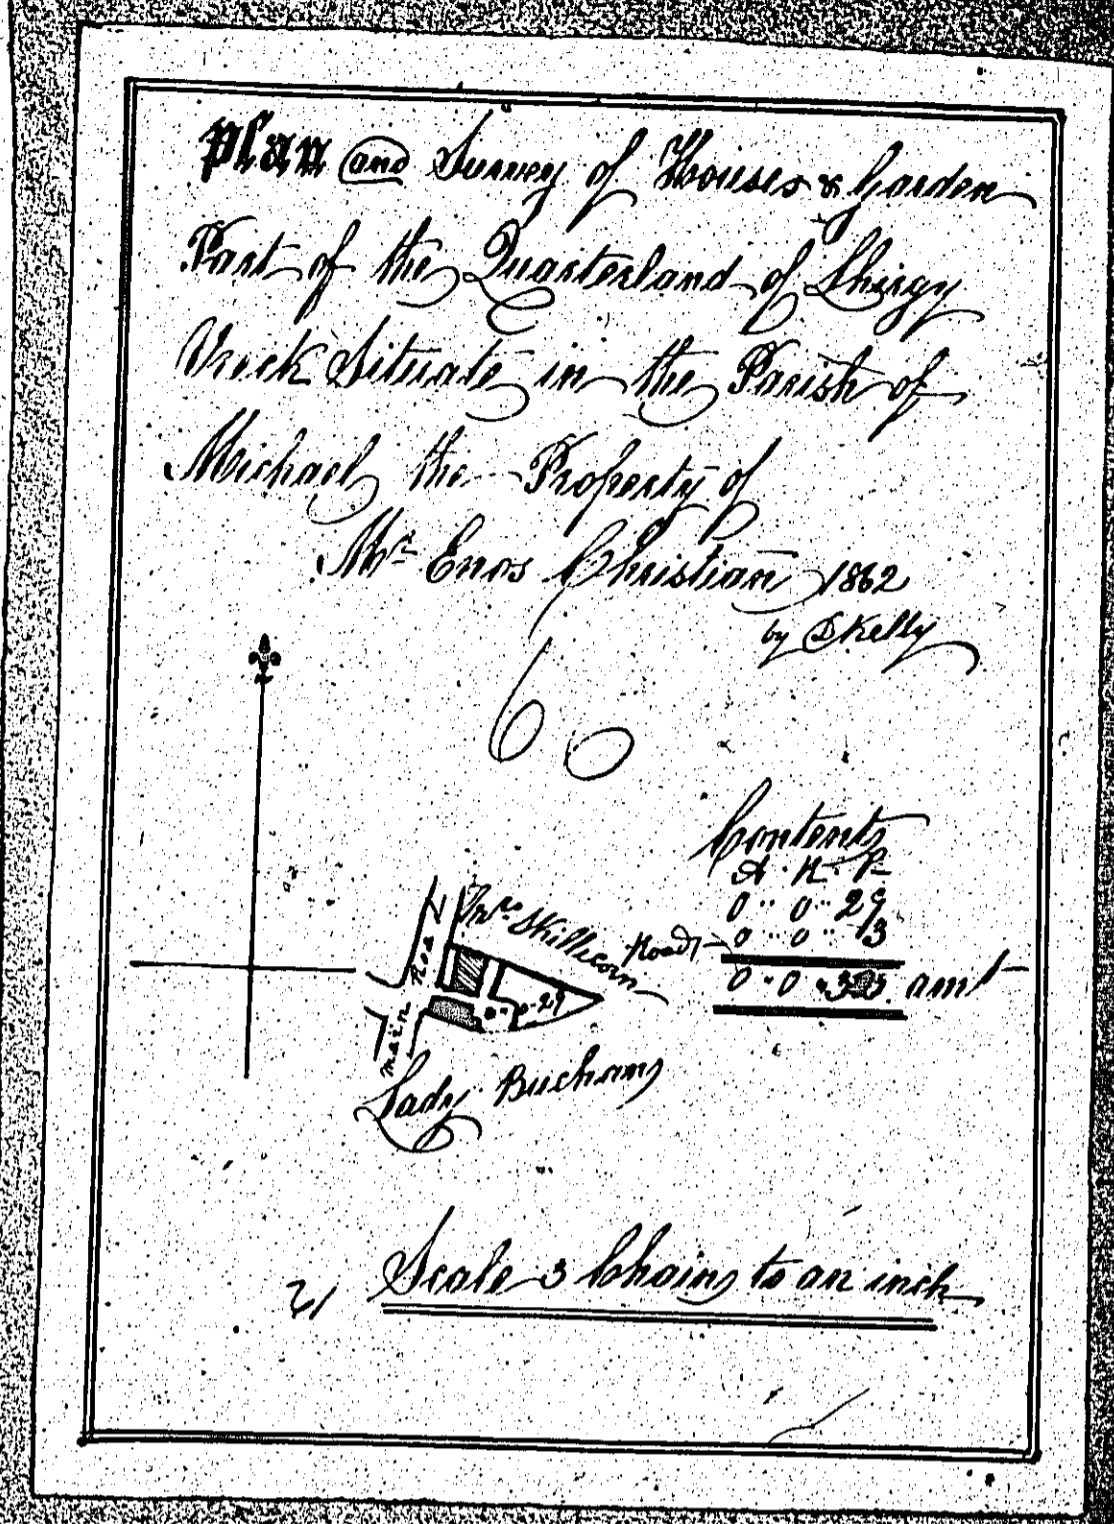 Plan and Survey of Houses & Garden
Part of the Quarterland of Shirgy
Vreck Situate in the Parish of
Michael the Property of
Mr Enos Christian 1862
by D Kelly
60
Contents
A. R. P
0 " 0 " 29
Road 0 " 0 " 3
0 " 0 " 32 amt
Mrs Skillicorn
Main Road
0 - 0 - 29
Lady Buchans
21
Scale 3 Chains to an inch